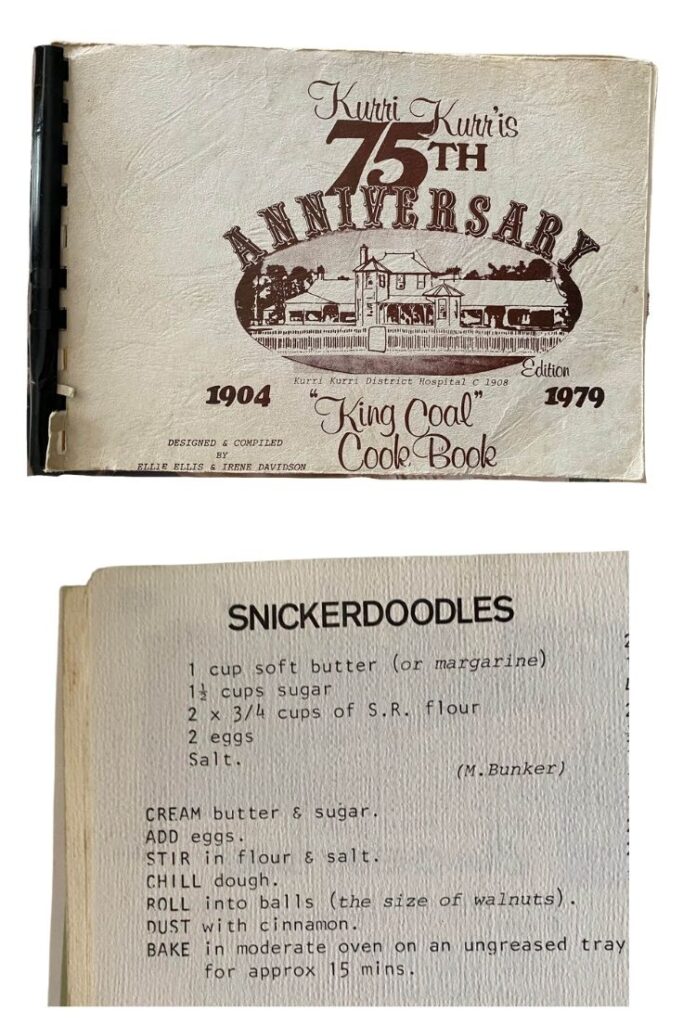 Kurri Kurr'is
75TH
ANNIVERSARY
Edition
Kurri Kurri District Hospital C 1908
1904 1979
"King Coal"
Cook Book
DESIGNED & COMPILED
BY
ELLIE ELLIS & IRENE DAVIDSON
SNICKERDOODLES
1 cup soft butter (or margarine)
1½ cups sugar
2 x 3/4 cups of S.R. flour
2 eggs
Salt.
(M.Bunker)
CREAM butter & sugar.
ADD eggs.
STIR in flour & salt.
CHILL dough.
ROLL into balls (the size of walnuts).
DUST with cinnamon.
BAKE in moderate oven on an ungreased tray
for approx 15 mins.